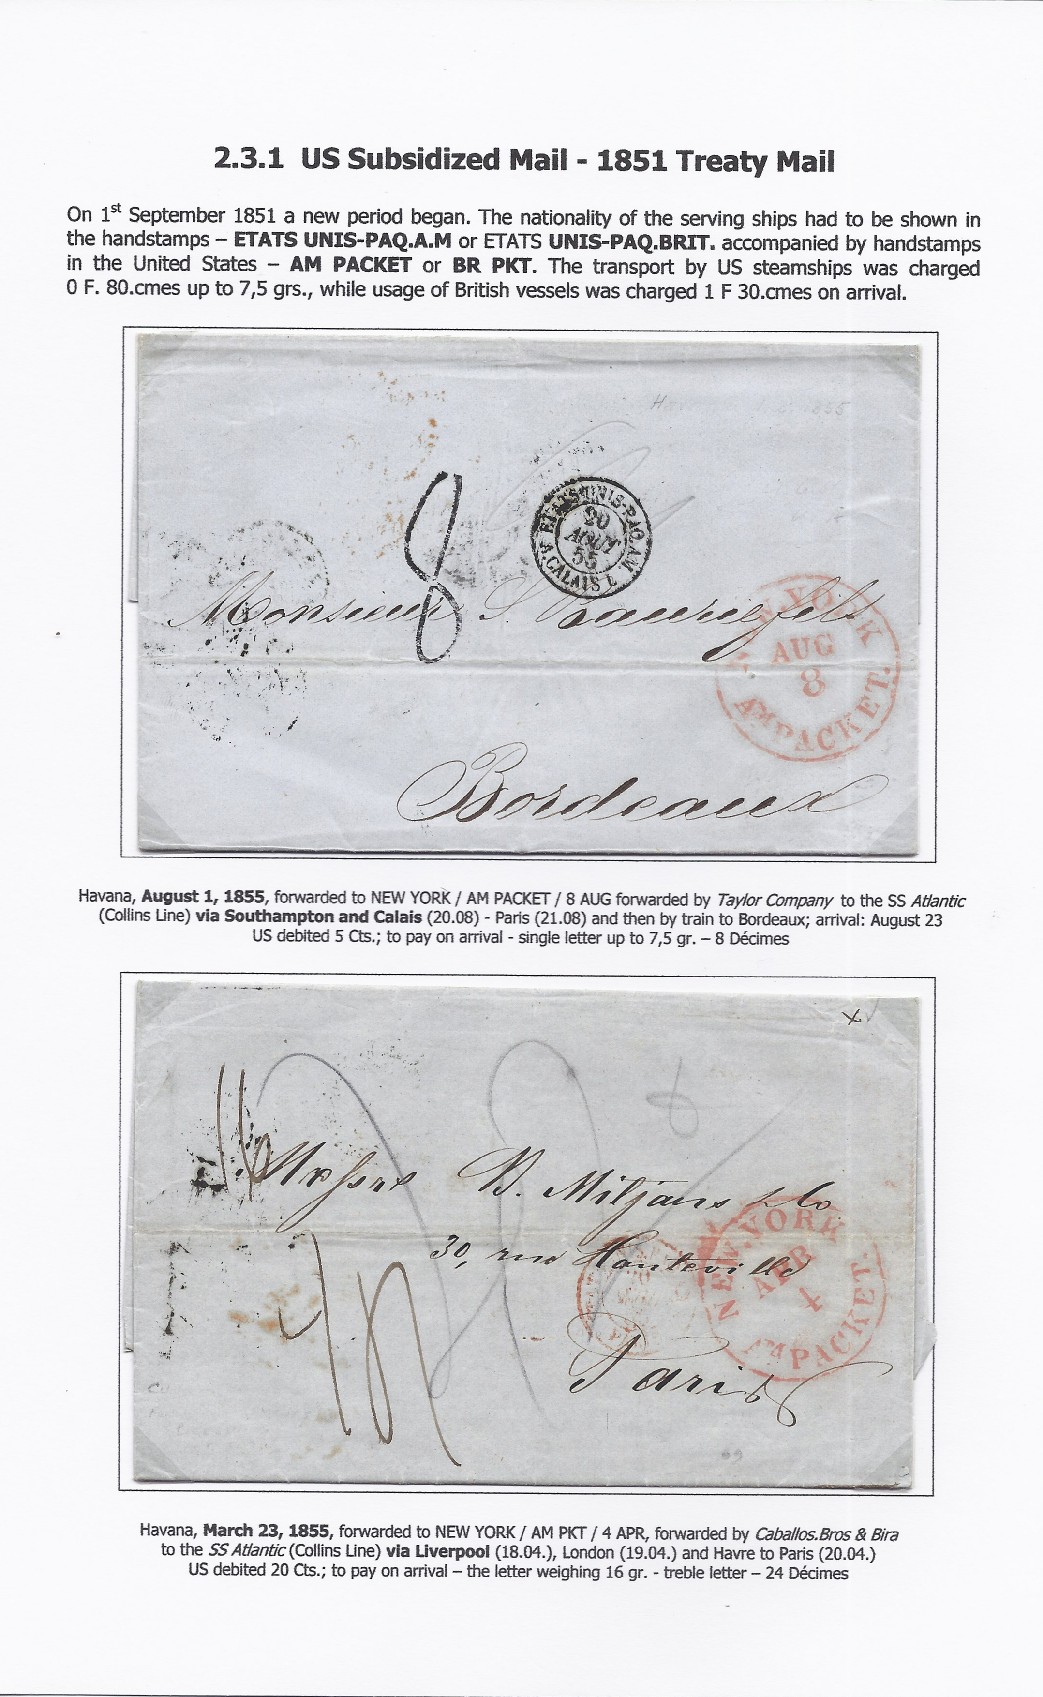 2.3.1 US Subsidized Mail - 1851 Treaty Mail
On 1st September 1851 a new period began. The nationality of the serving ships had to be shown in
the handstamps – ETATS UNIS-PAQ.A.M or ETATS UNIS-PAQ.BRIT. accompanied by handstamps
in the United States – AM PACKET or BR PKT. The transport by US steamships was charged
0 F. 80.cmes up to 7,5 grs., while usage of British vessels was charged 1 F 30.cmes on arrival.
8
ETATS-UNIS-PAQ.AM.
20
AOUT
55
A.CALAIS L
Monsieur S. fils
NEW YORK
AUG
8
AM PACKET.
Bordeaux
Havana, August 1, 1855, forwarded to NEW YORK / AM PACKET / 8 AUG forwarded by Taylor Company to the SS Atlantic
(Collins Line) via Southampton and Calais (20.08) - Paris (21.08) and then by train to Bordeaux; arrival: August 23
US debited 5 Cts.; to pay on arrival - single letter up to 7,5 gr. – 8 Décimes
x
16
Messrs B. Mitjans & Co
30, rue Hauteville
Paris
NEW YORK
APR
4
AM PACKET.
Havana, March 23, 1855, forwarded to NEW YORK / AM PKT / 4 APR, forwarded by Caballos.Bros & Bira
to the SS Atlantic (Collins Line) via Liverpool (18.04.), London (19.04.) and Havre to Paris (20.04.)
US debited 20 Cts.; to pay on arrival – the letter weighing 16 gr. - treble letter – 24 Décimes